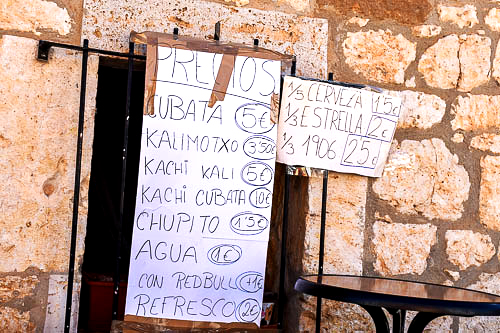 PRECIOS
CUBATA 5€
KALIMOTXO 3'50€
KACHI KALI 5€
KACHI CUBATA 10€
CHUPITO 1'5€
AGUA 1€
CON REDBULL +1€
REFRESCO 2€
1/5 CERVEZA 1'5€
1/3 ESTRELLA 2€
1/3 1906 2'5€